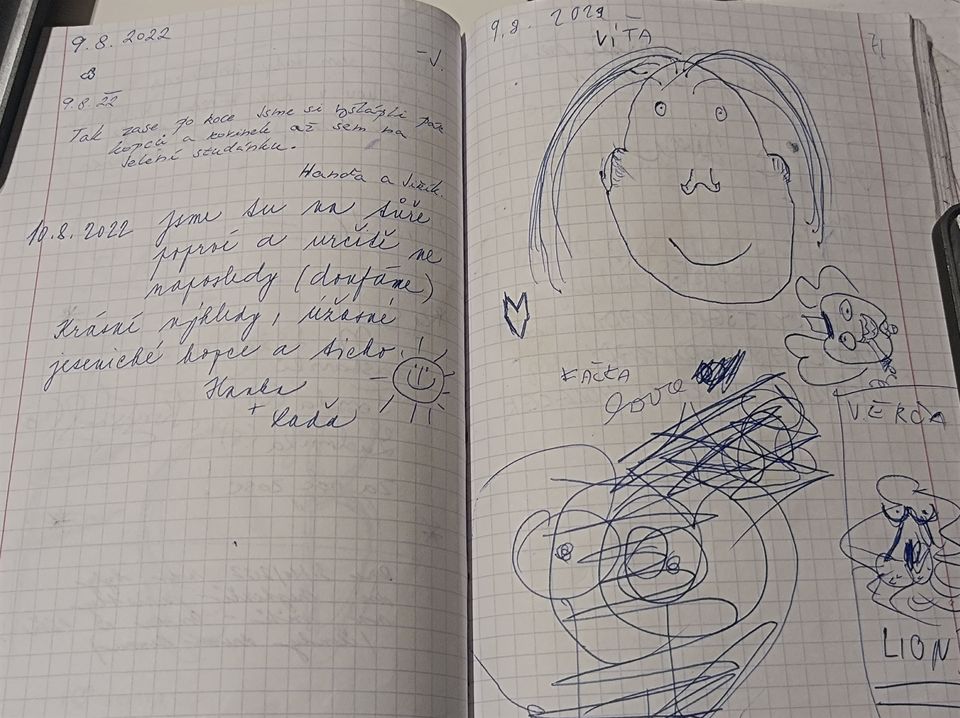 9.8.2022
9.8.22
Tak zase po roce jsme si vyšlápli pár
kopců a rovinek až sem na
Jelení studánku.
Hanča a Jižík.
10.8.2022 jsme tu na túře
poprvé a určitě ne
naposledy (doufáme)
Krásné výhledy, úžasné
jesenické kopce a ticho.
Hanka
+
Laďa
9.8.2022
VÍŤA
71
KAČKA
VERČA
LION